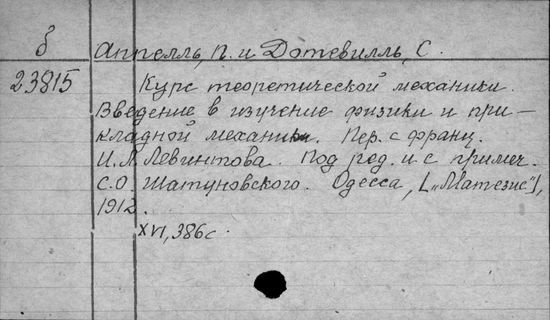 б Аппелль, П. и Дотевилль, С.
23815 Курс теоретической механики.
Введение в изучение физики и при-
кладной механики. Пер. с франц.
И.Л. Левинтова. Под ред. и с примеч.
С.О. Шатуновского. Одесса, [„Матезис"],
1912.
XVI, 386с.